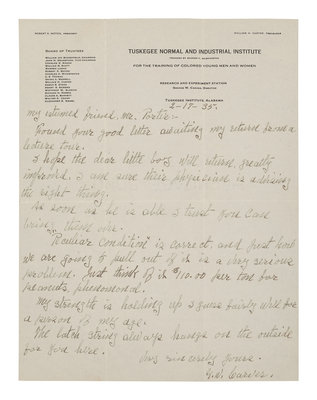 ROBERT R. MOTON, PRESIDENT
WILLIAM H. CARTER, TREASURER
BOARD OF TRUSTEES
TUSKEGEE NORMAL AND INDUSTRIAL INSTITUTE
FOUNDED BY BOOKER T. WASHINGTON
FOR THE TRAINING OF COLORED YOUNG MEN AND WOMEN
RESEARCH AND EXPERIMENT STATION
GEORGE W. CARVER, DIRECTOR
TUSKEGEE INSTITUTE, ALABAMA
2-17-35.
my esteemed friend, Mr. Porter:-
Found your good letter awaiting my return from a
lecture tour.
I hope the dear little boy will return greatly
improved. I am sure their physician is advising
the right thing.
As soon as he is able I trust you can
bring them over.
"Peculiar Condition" is correct, and just how
we are going to pull out of it is a very serious
problem. Just think of it $110.00 per ton for
peanuts, phenomenal.
My strength is holding up I guess fairly well for
a person of my age.
The latch string always hangs on the outside
for you here.
Very sincerely yours.
G. W. Carver.